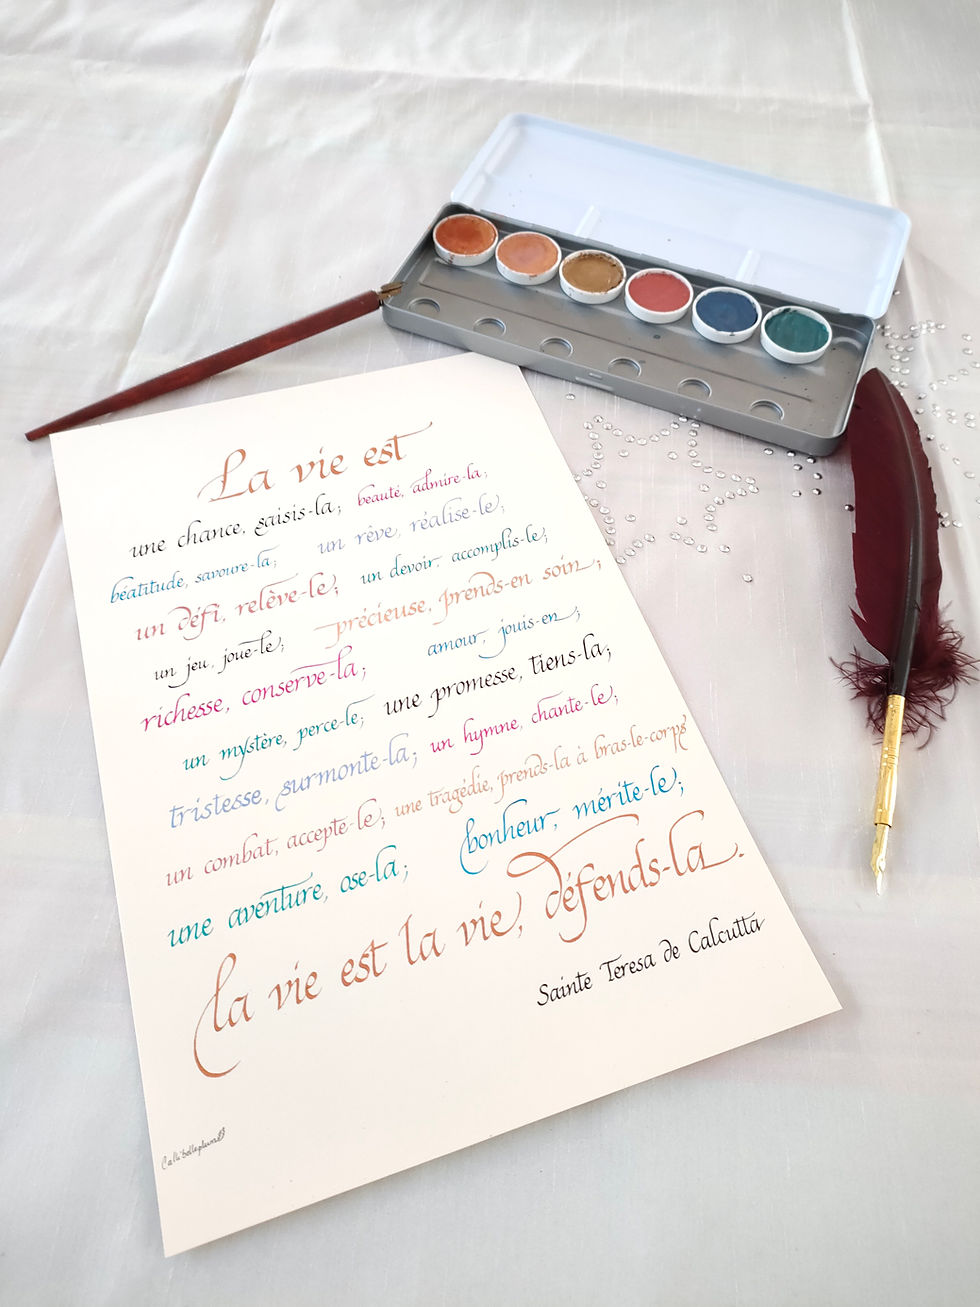 La vie est
une chance, saisis-la; beauté, admire-la;
béatitude, savoure-la; un rêve, réalise-le;
un défi, relève-le; un devoir, accomplis-le;
un jeu, joue-le; précieuse, prends-en soin;
richesse, conserve-la; amour, jouis-en;
un mystère, perce-le; une promesse, tiens-la;
tristesse, surmonte-la; un hymne, chante-le;
un combat, accepte-le; une tragédie, prends-la à bras-le-corps
une aventure, ose-la; bonheur, mérite-le;
la vie est la vie, défends-la.
Sainte Teresa de Calcutta
Callibelleplume